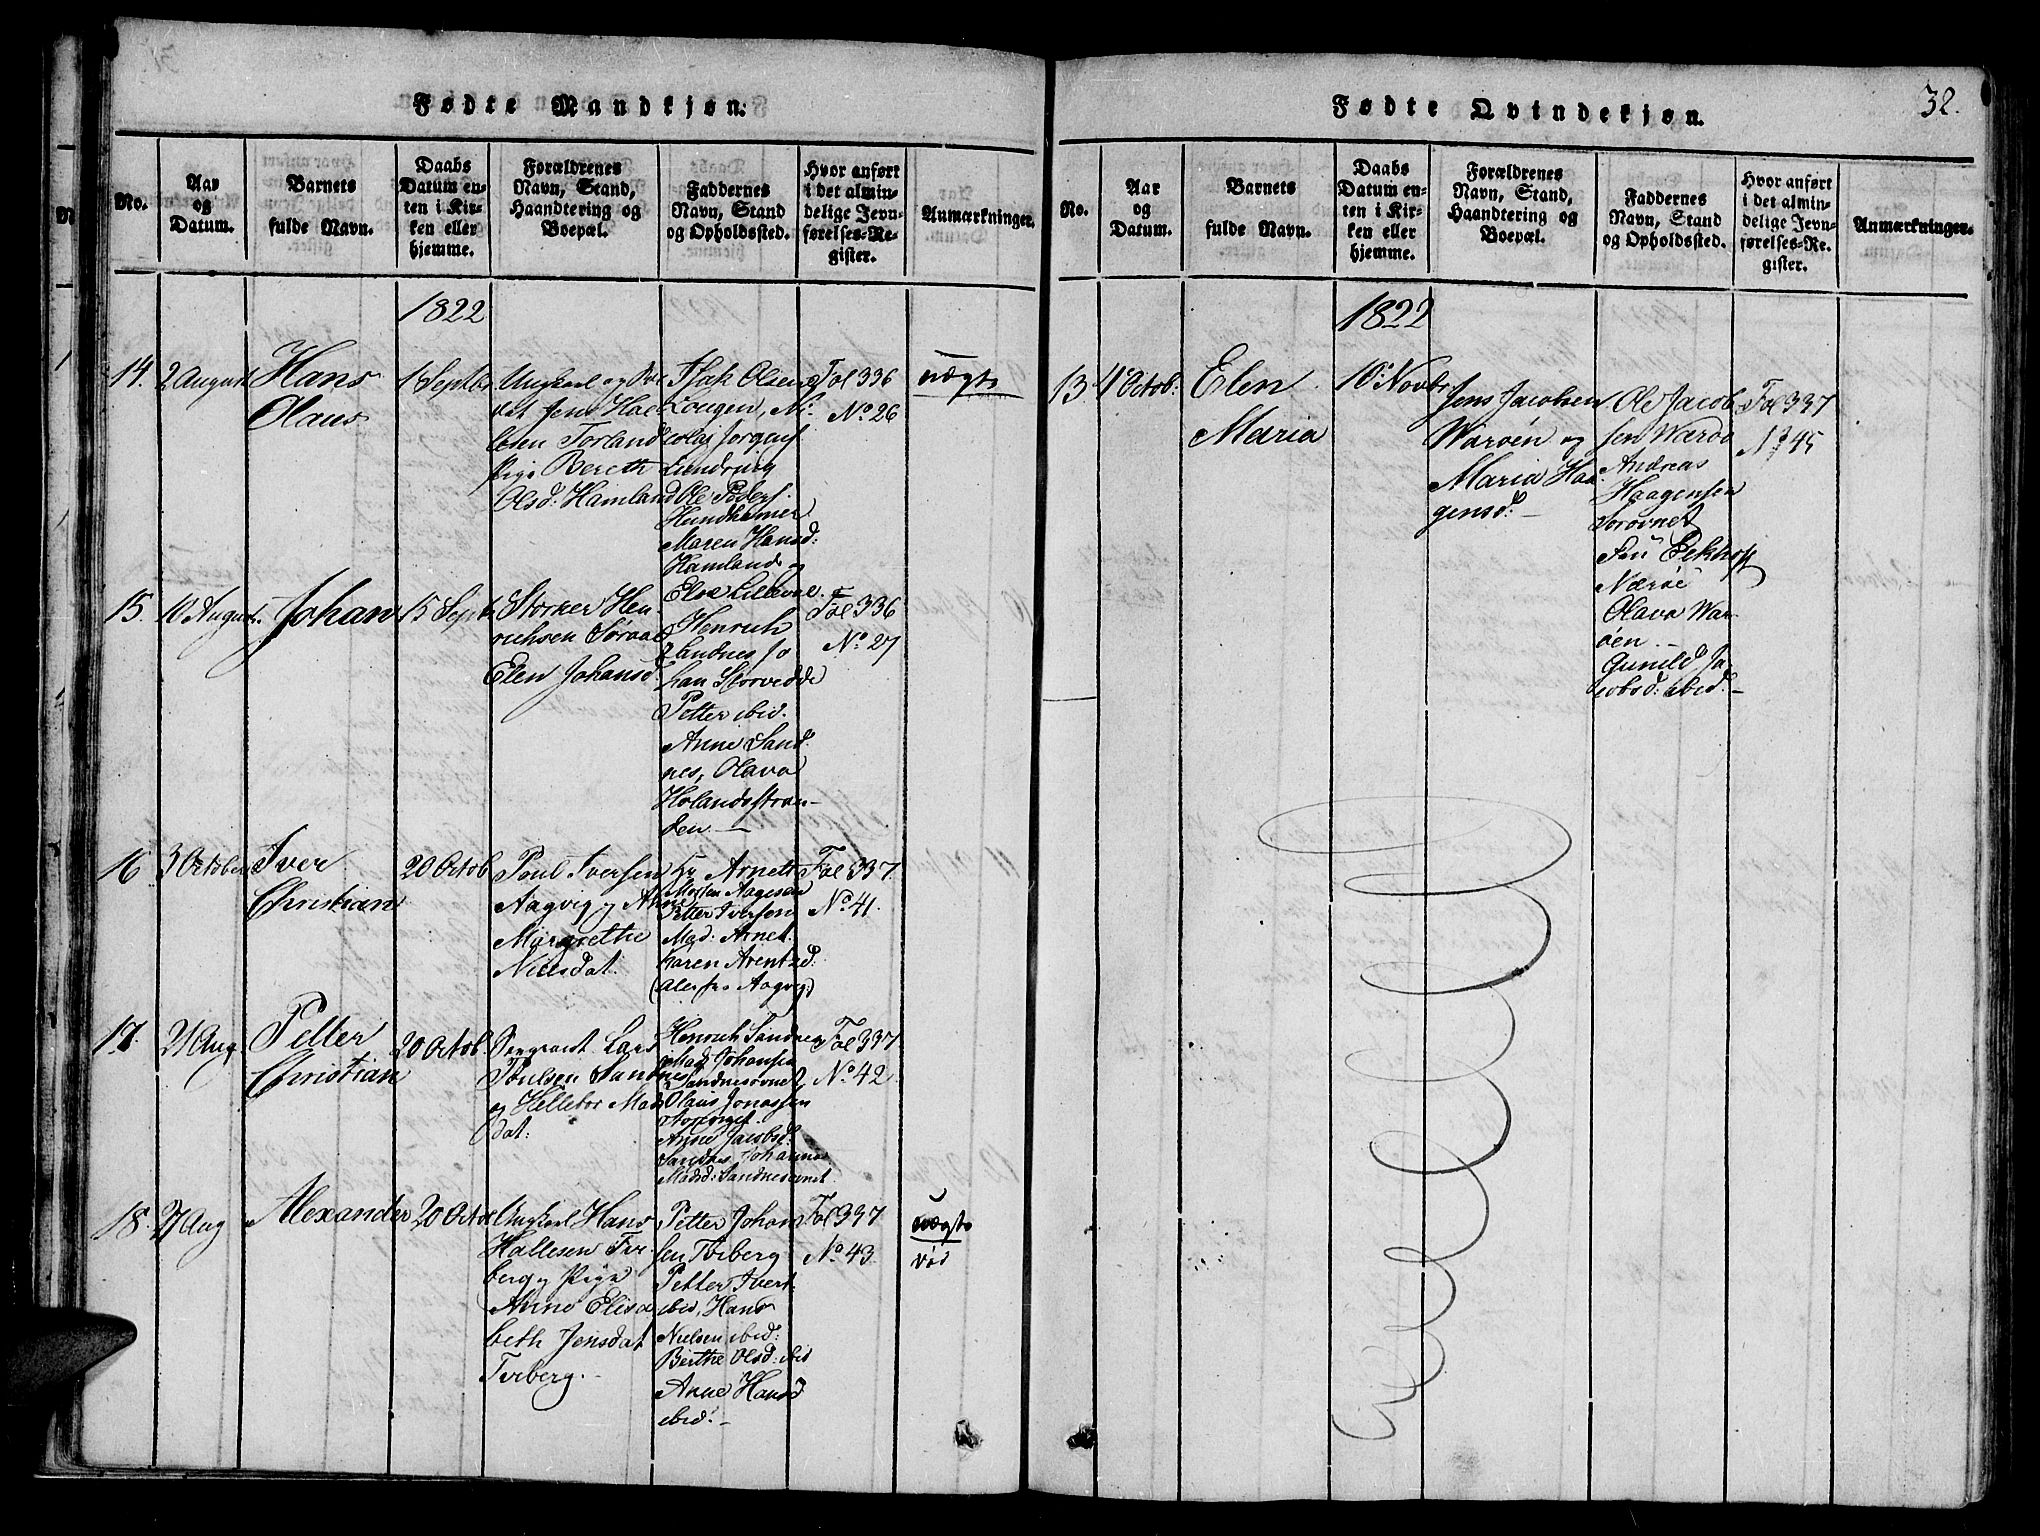 Fødte Mandkjøn.
No.
Aar
og
Datum.
Barnets
fulde Navn.
Daabs
Datum en-
ten i Kir-
ken eller
hjemme.
Forældrenes
Navn, Stand,
Haandtering og
Boepæl.
Faddernes
Navn, Stand
og Opholdssted.
Hvor anført
i det almin-
delige Jevn-
førelses-Re-
gister.
Anmærkninger.
1822
14.
2 August
Hans
Olaus
1 Septbr
Ungkarl og
Jens Hal
lesen Torland
Pige Bereth
Olsd: Hamland
Isak Olsen
Lougen, Ni-
colaj Jørgens
Lundring
Ole Peders.
Hundhamer
Maren Hansd:
Hamland og
Fol 336
No. 26
uægte
15.
10 August.
Johan
15 Sept
Storker Hen-
richsen Søraa
Elen Johansd.
Henrich
Sandnes Jo
han Storvedde
Petter ibid.
Anne Sand
nes, Olava
Holandsstran-
den. —
Fol 336
No. 27
16
3 October
Iver
Christian
20 Octob
Poul Iversen
Aagvig og Anne
Margrethe
Nielsdat.
Hr Arnet
Morten Aagesen
Petter Iversen
Mad: Arnet.
Karen Arentzd.
(alersens Aagvig)
Fol 337
No. 41.
17.
21 Aug.
Petter
Christian
20 Octob.
Sergeant Lars
Poulsen Sandnes
og Hellebor Mads
dat:
Henrich Sandnes
Mads Johansen
Sandnesøvnet
Olaus Jonassen
Anne Jacobsd.
Sandnes Johanna
Madsd: Sandnesøvnet
Fol 337
No. 42
18.
27 Aug
Alexander
20 Octob
Ungkarl Hans
Hallesen Ter-
berg og Pige
Anne Elisa
beth Jensdat
Terberg.
Petter Johan
sen Terberg
Petter Ivers.
ibid, Hans
Nielsen ibid:
Berthe Olsd: ibid
Anne Hansd
ibid. —
Fol 337
No. 43
uægte
død
Fødte Qvindekjøn.
32.
No.
Aar
og
Datum.
Barnets
fulde Navn.
Daabs
Datum en-
ten i Kir-
ken eller
hjemme.
Forældrenes
Navn, Stand,
Haandtering og
Boepæl.
Faddernes
Navn, Stand
og Opholdssted.
Hvor anført
i det almin-
delige Jevn-
førelses-Re-
gister.
Anmærkninger.
1822
13
4 Octob:
Elen
Maria
10. Novbr
Jens Jacobsen
Warøen og
Maria Haa
gensd. —
Ole Jacob
sen Warøe
Andreas
Haagensen
Sorøvnet
Frü Eckhoff
Nærøe
Olava War-
øen. —
Gunild Ja-
cobsd: ibid. —
Fol 337
No 45